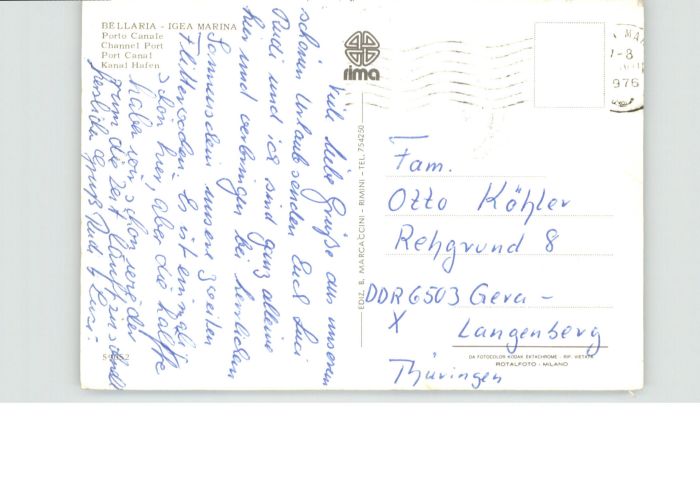 BELLARIA - IGEA MARINA
Porto Canale
Channel Port
Port Canal
Kanal Hafen
rima
1-8
976
Viele liebe Grüße aus unserem
schönen Urlaub senden Euch Luci
Rudi und ich sind ganz alleine
hier und verbringen bei herrlichen
Sonnenschein unsere zweiten
Flitterwochen. Es ist einmalig
schön hier, aber die Hälfte
haben wir schon wieder
rum die Zeit läuft so schnell
Herzliche Grüße Rudi & Luci
EDIZ. B. MARCACCINI - RIMINI - TEL. 754250
Fam.
Otto Köhler
Rehgrund 8
DDR 6503 Gera -
X Langenberg
Thüringen
DA FOTOCOLOR KODAK EKTACHROME - RIP. VIETATA
ROTALFOTO - MILANO